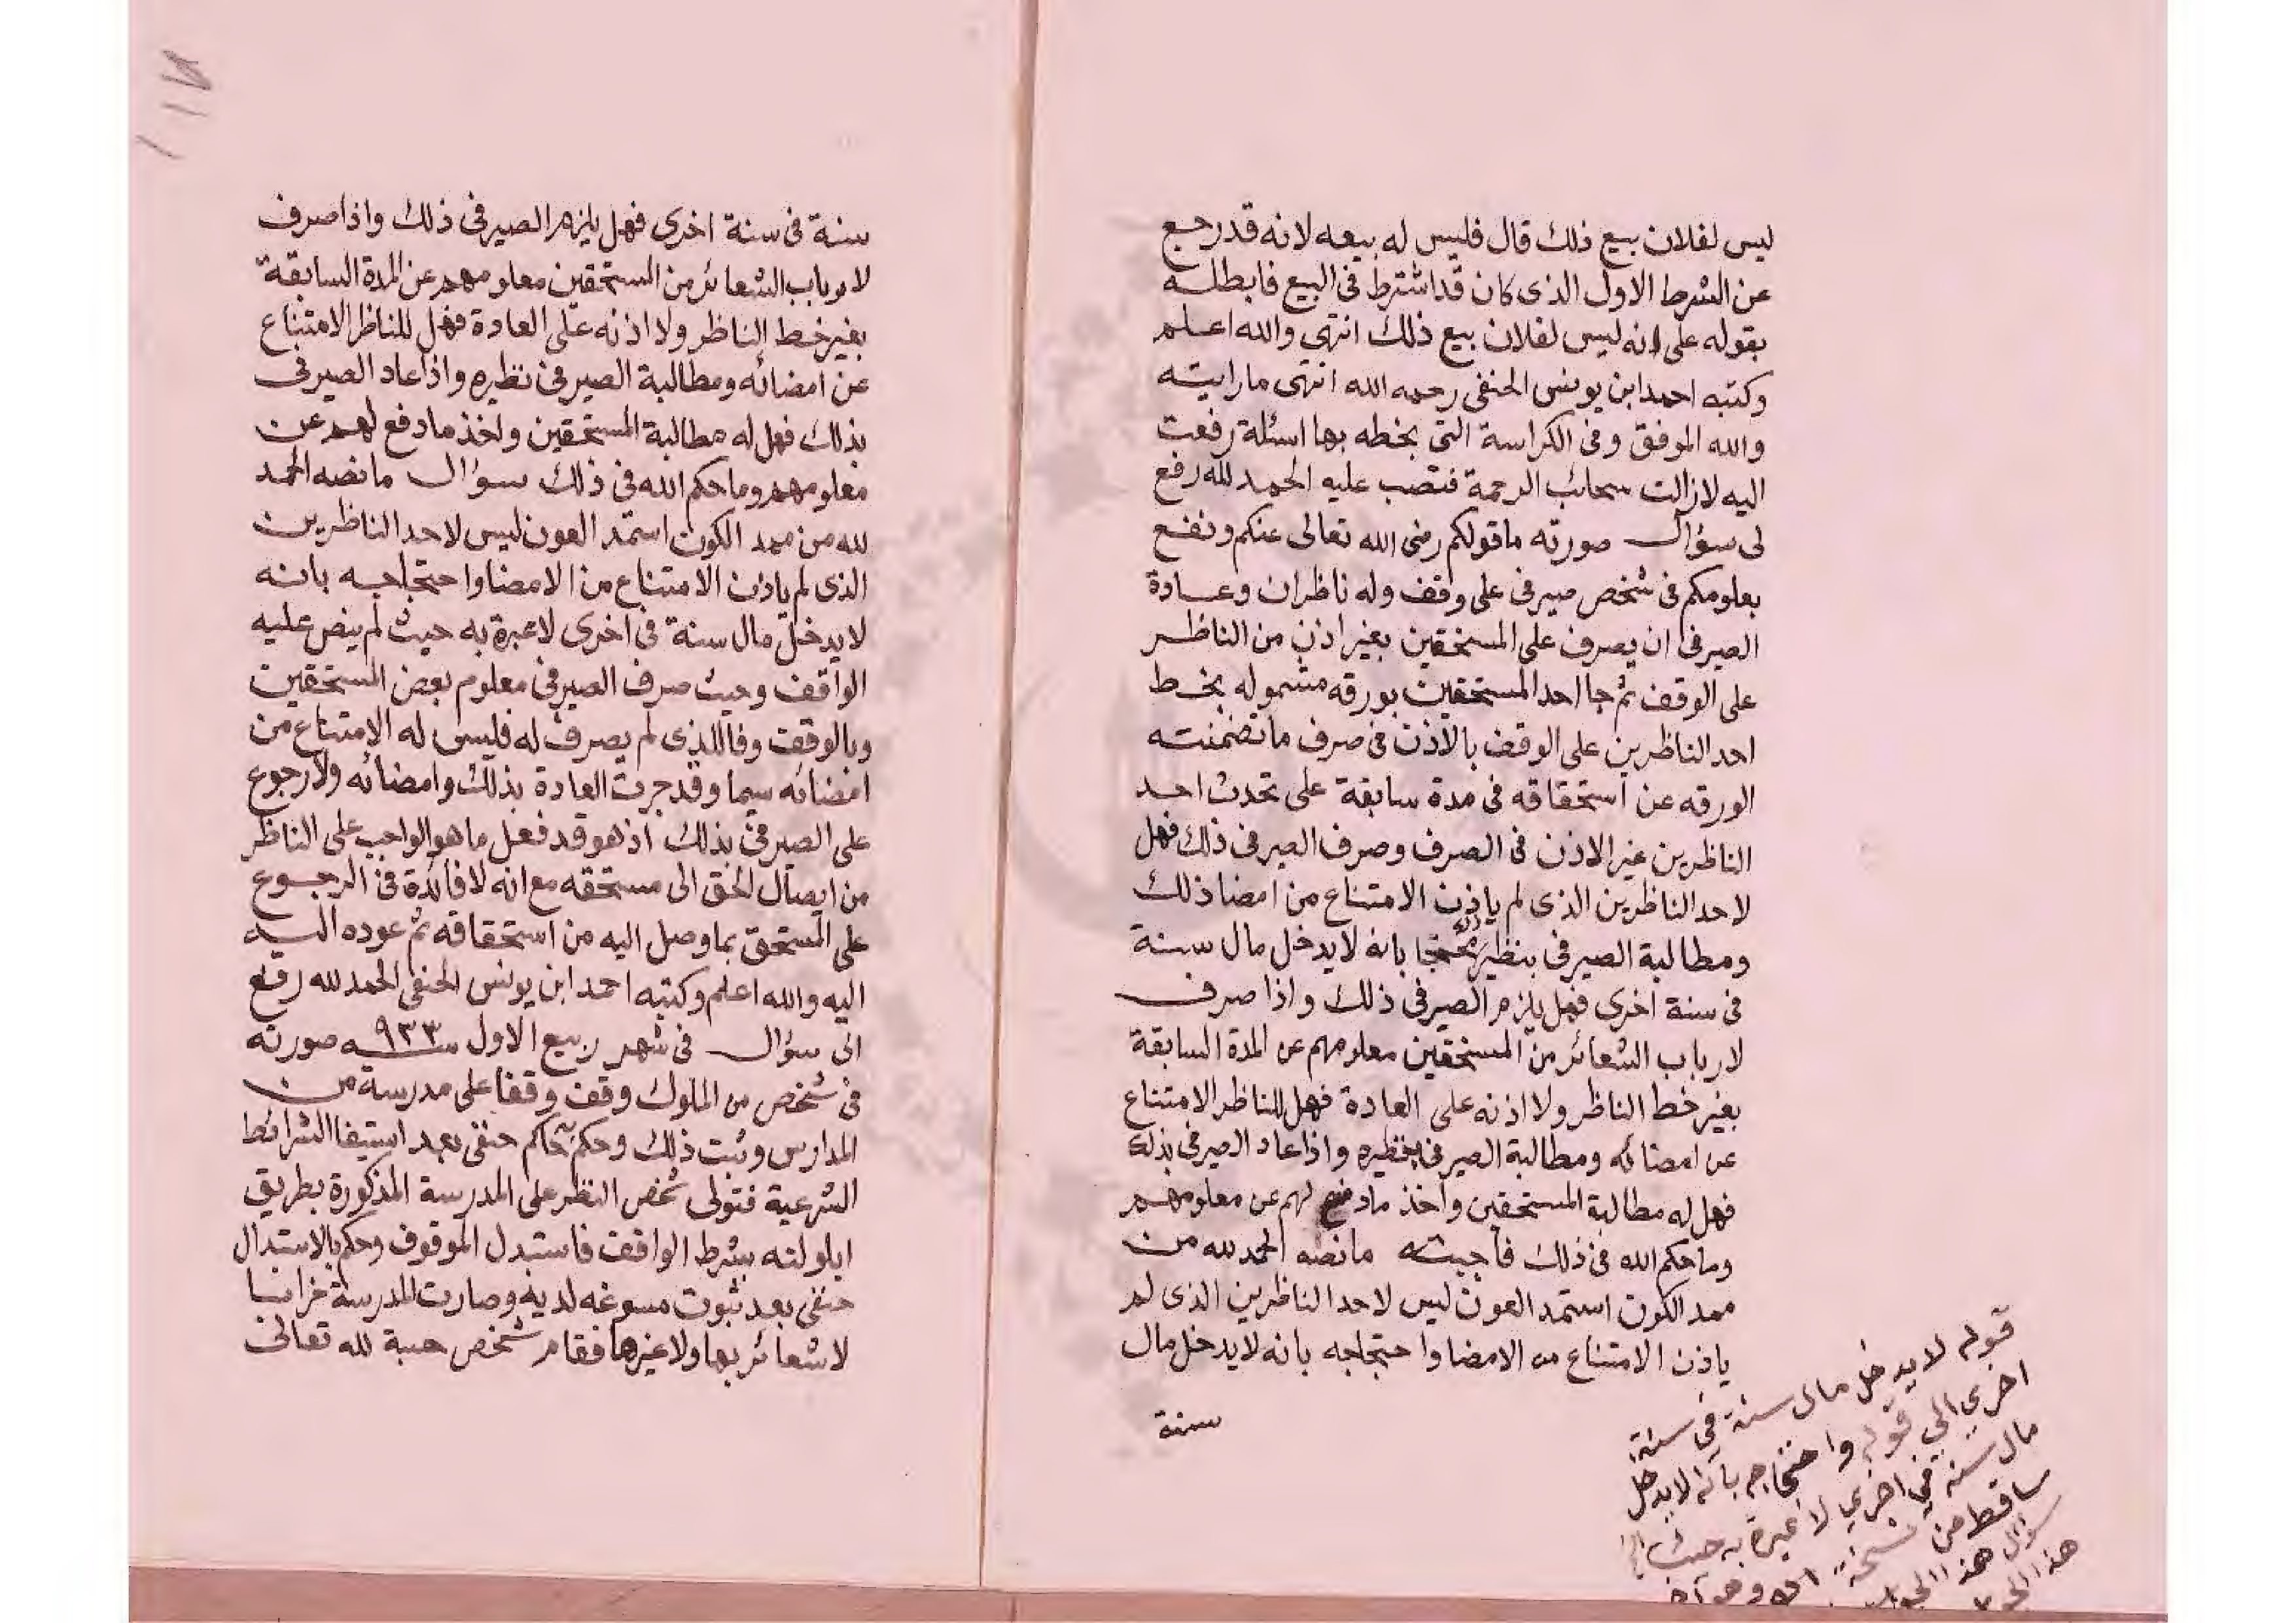 ليس لفلان بيع ذلك قال فليس له بيعه لانه قد رجع
عن الشرط الاول الذى كان قد اشترط فى البيع فابطله
بقوله على انه ليس لفلان بيع ذلك انتهى والله اعلم
وكتبه احمد ابن يونس الحنفى رحمه الله انتهى ما رايته
والله الموفق وفى الكراسة التى بخطه بها اسئلة رفعت
اليه لازالت سحائب الرحمة فتصب عليه الحمد لله رفع
لى سؤال صورته ما قولكم رضى الله تعالى عنكم ونفع
بعلومكم فى شخص صيرفى على وقف وله ناظران وعادة
الصيرفى ان يصرف على المستحقين بغير اذن من الناظر
على الوقف ثم جا احد المستحقين بورقه مشموله بخط
احد الناظرين على الوقف بالاذن فى صرف ما تضمنته
الورقه عن استحقاقه فى مدة سابقة على تحدث احد
الناظرين غير الاذن فى الصرف وصرف الصيرفى ذلك فهل
لاحد الناظرين الذى لم ياذن الامتناع من امضا ذلك
ومطالبة الصيرفى بنظير ذلك محتجا بانه لا يدخل مال سنة
فى سنة اخرى فهل يلزم الصيرفى ذلك واذا صرف
لارباب الشعائر من المستحقين معلومهم عن المدة السابقة
بغير خط الناظر ولا اذنه على العادة فهل للناظر الامتناع
عن امضائه ومطالبة الصيرفى بنظيره واذا عاد الصيرفى بذلك
فهل له مطالبة المستحقين واخذ ما دفع لهم عن معلومهم
وما حكم الله فى ذلك فاجبته ما نصه الحمد لله من
ممد الكون استمد العون ليس لاحد الناظرين الذى لم
ياذن الامتناع من الامضا واحتجاجه بانه لا يدخل مال
سنة
قوله لا يدخل مال سنة في سنة
اخري الي قوله واحتجاجه بانه لا يدخل
مال سنة في اخري لا عبرة به حيث
ساقط من نسخة
سؤال هذا
هذا
١١٧
سنة فى سنة اخرى فهل يلزم الصيرفى ذلك واذا صرف
لارباب الشعائر من المستحقين معلومهم عن المدة السابقة
بغير خط الناظر ولا اذنه على العادة فهل للناظر الامتناع
عن امضائه ومطالبة الصيرفى نظيره واذا عاد الصيرفى
بذلك فهل له مطالبة المستحقين واخذ ما دفع لهم عن
معلومهم وما حكم الله فى ذلك سؤال ما نصه الحمد
لله من ممد الكون استمد العون ليس لاحد الناظرين
الذى لم ياذن الامتناع من الامضا واحتجاجه بانه
لا يدخل مال سنة فى اخرى لا عبرة به حيث لم ينص عليه
الواقف وحيث صرف الصيرفى معلوم بعض المستحقين
وبالوقف وفا للذى لم يصرف له فليس له الامتناع من
امضائه سيما وقد جرت العادة بذلك وامضائه ولا رجوع
على الصيرفى بذلك اذ هو قد فعل ما هو الواجب على الناظر
من ايصال الحق الى مستحقه مع انه لا فائدة فى الرجوع
على المستحق بما وصل اليه من استحقاقه ثم عوده اليه
اليه والله اعلم وكتبه احمد ابن يونس الحنفى الحمد لله رفع
الى سؤال فى شهر ربيع الاول سنه ٩٣٣ صورته
فى شخص من الملوك وقف وقفا على مدرسة من
المدارس وثبت ذلك وحكم حاكم حنفى بعد استيفا الشرائط
الشرعية فتولى شخص النظر على المدرسة المذكورة بطريق
ايلولته بشرط الواقف فاستبدل الموقوف وحكم بالاستبدال
حنفى بعد ثبوت مسوغه لديه وصارت المدرسة خرابا
لا شعائر بها ولا غيرها فقام شخص حسبة لله تعالى